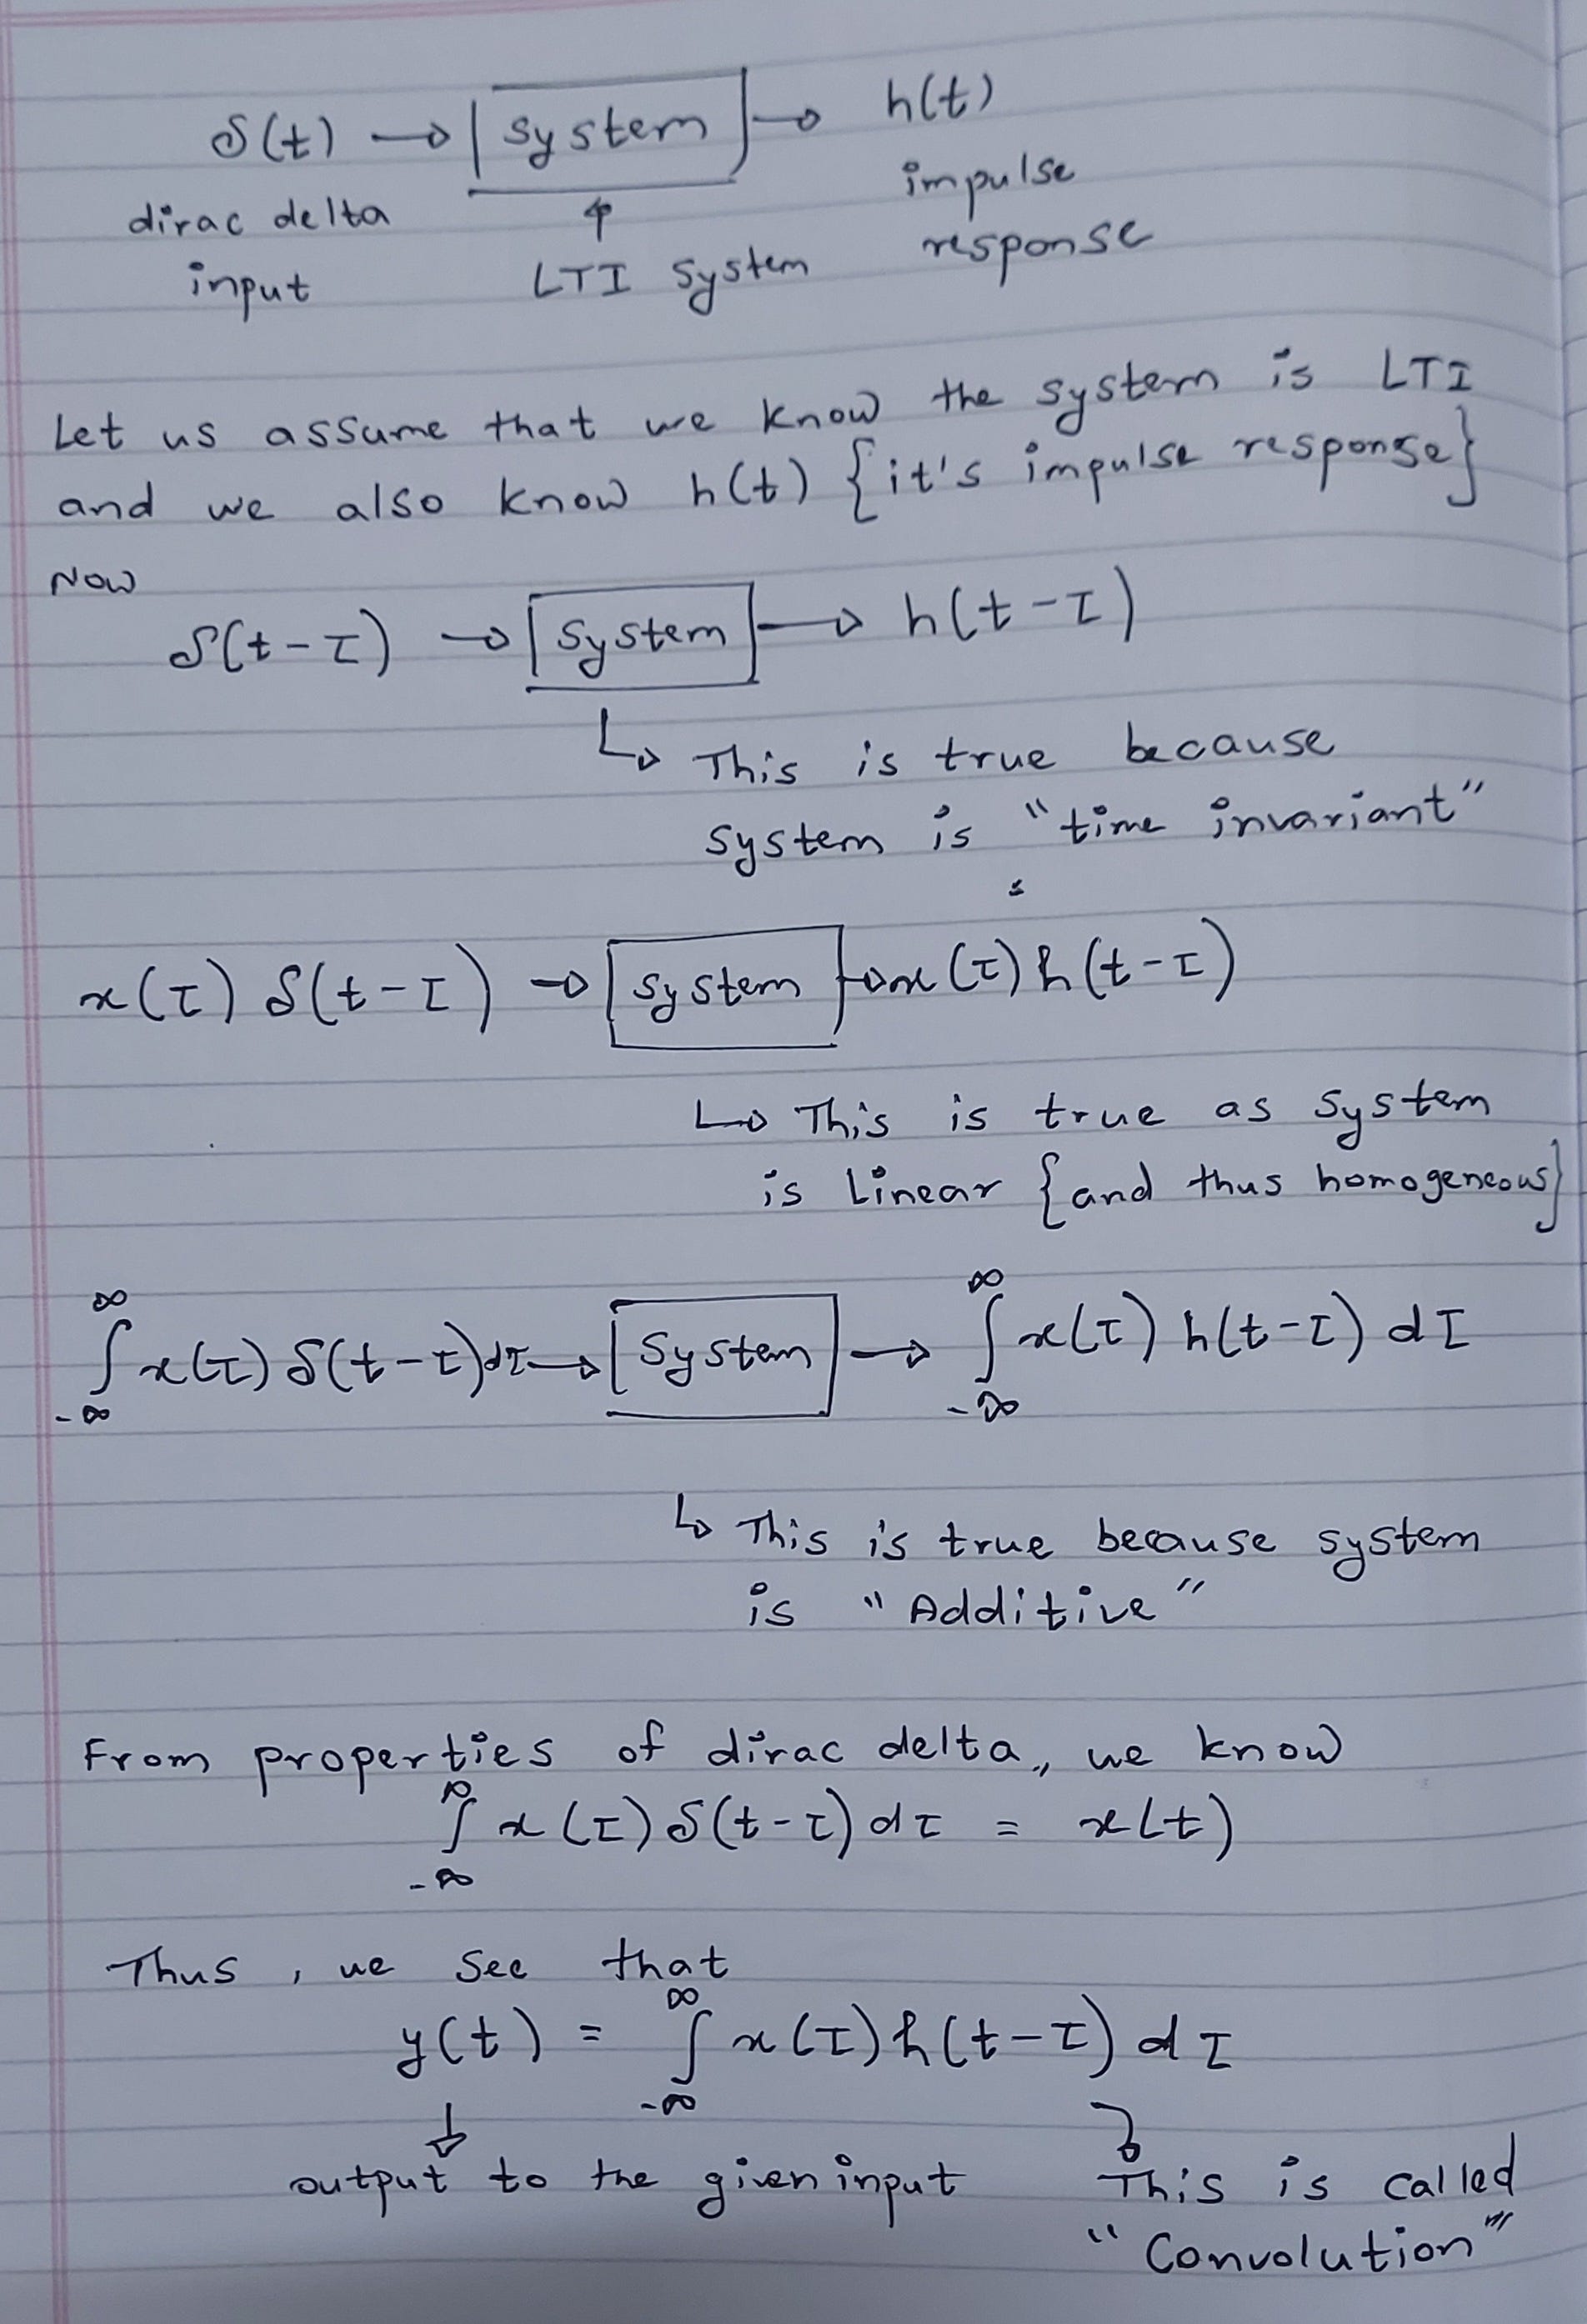 δ(t) → system → h(t)
dirac delta input
↑ LTI system
impulse response
Let us assume that we know the system is LTI
and we also know h(t) {it's impulse response}
Now
δ(t-τ) → system → h(t-τ)
↳ This is true because
system is "time invariant"
x(τ) δ(t-τ) → system → x(τ) h(t-τ)
↳ This is true as system
is Linear {and thus homogeneous}
∫_{-∞}^{∞} x(τ) δ(t-τ)dτ → system → ∫_{-∞}^{∞} x(τ) h(t-τ) dτ
↳ This is true because system
is "Additive"
From properties of dirac delta, we know
∫_{-∞}^{∞} x(τ) δ(t-τ) dτ = x(t)
Thus, we see that
y(t) = ∫_{-∞}^{∞} x(τ) h(t-τ) dτ
↓ output to the given input
This is called
"Convolution"